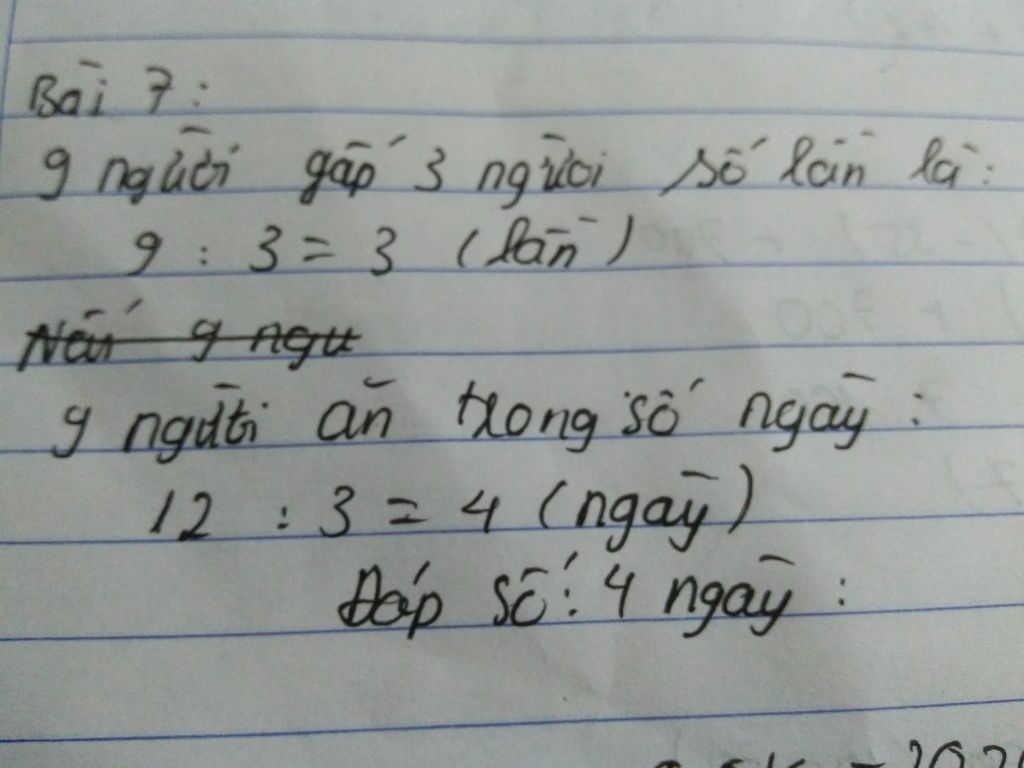 Bài 7:
9 người gấp 3 người số lần là:
9 : 3 = 3 (lần)
Nếu 9 ngư
9 người ăn trong số ngày:
12 : 3 = 4 (ngày)
Đáp số: 4 ngày: